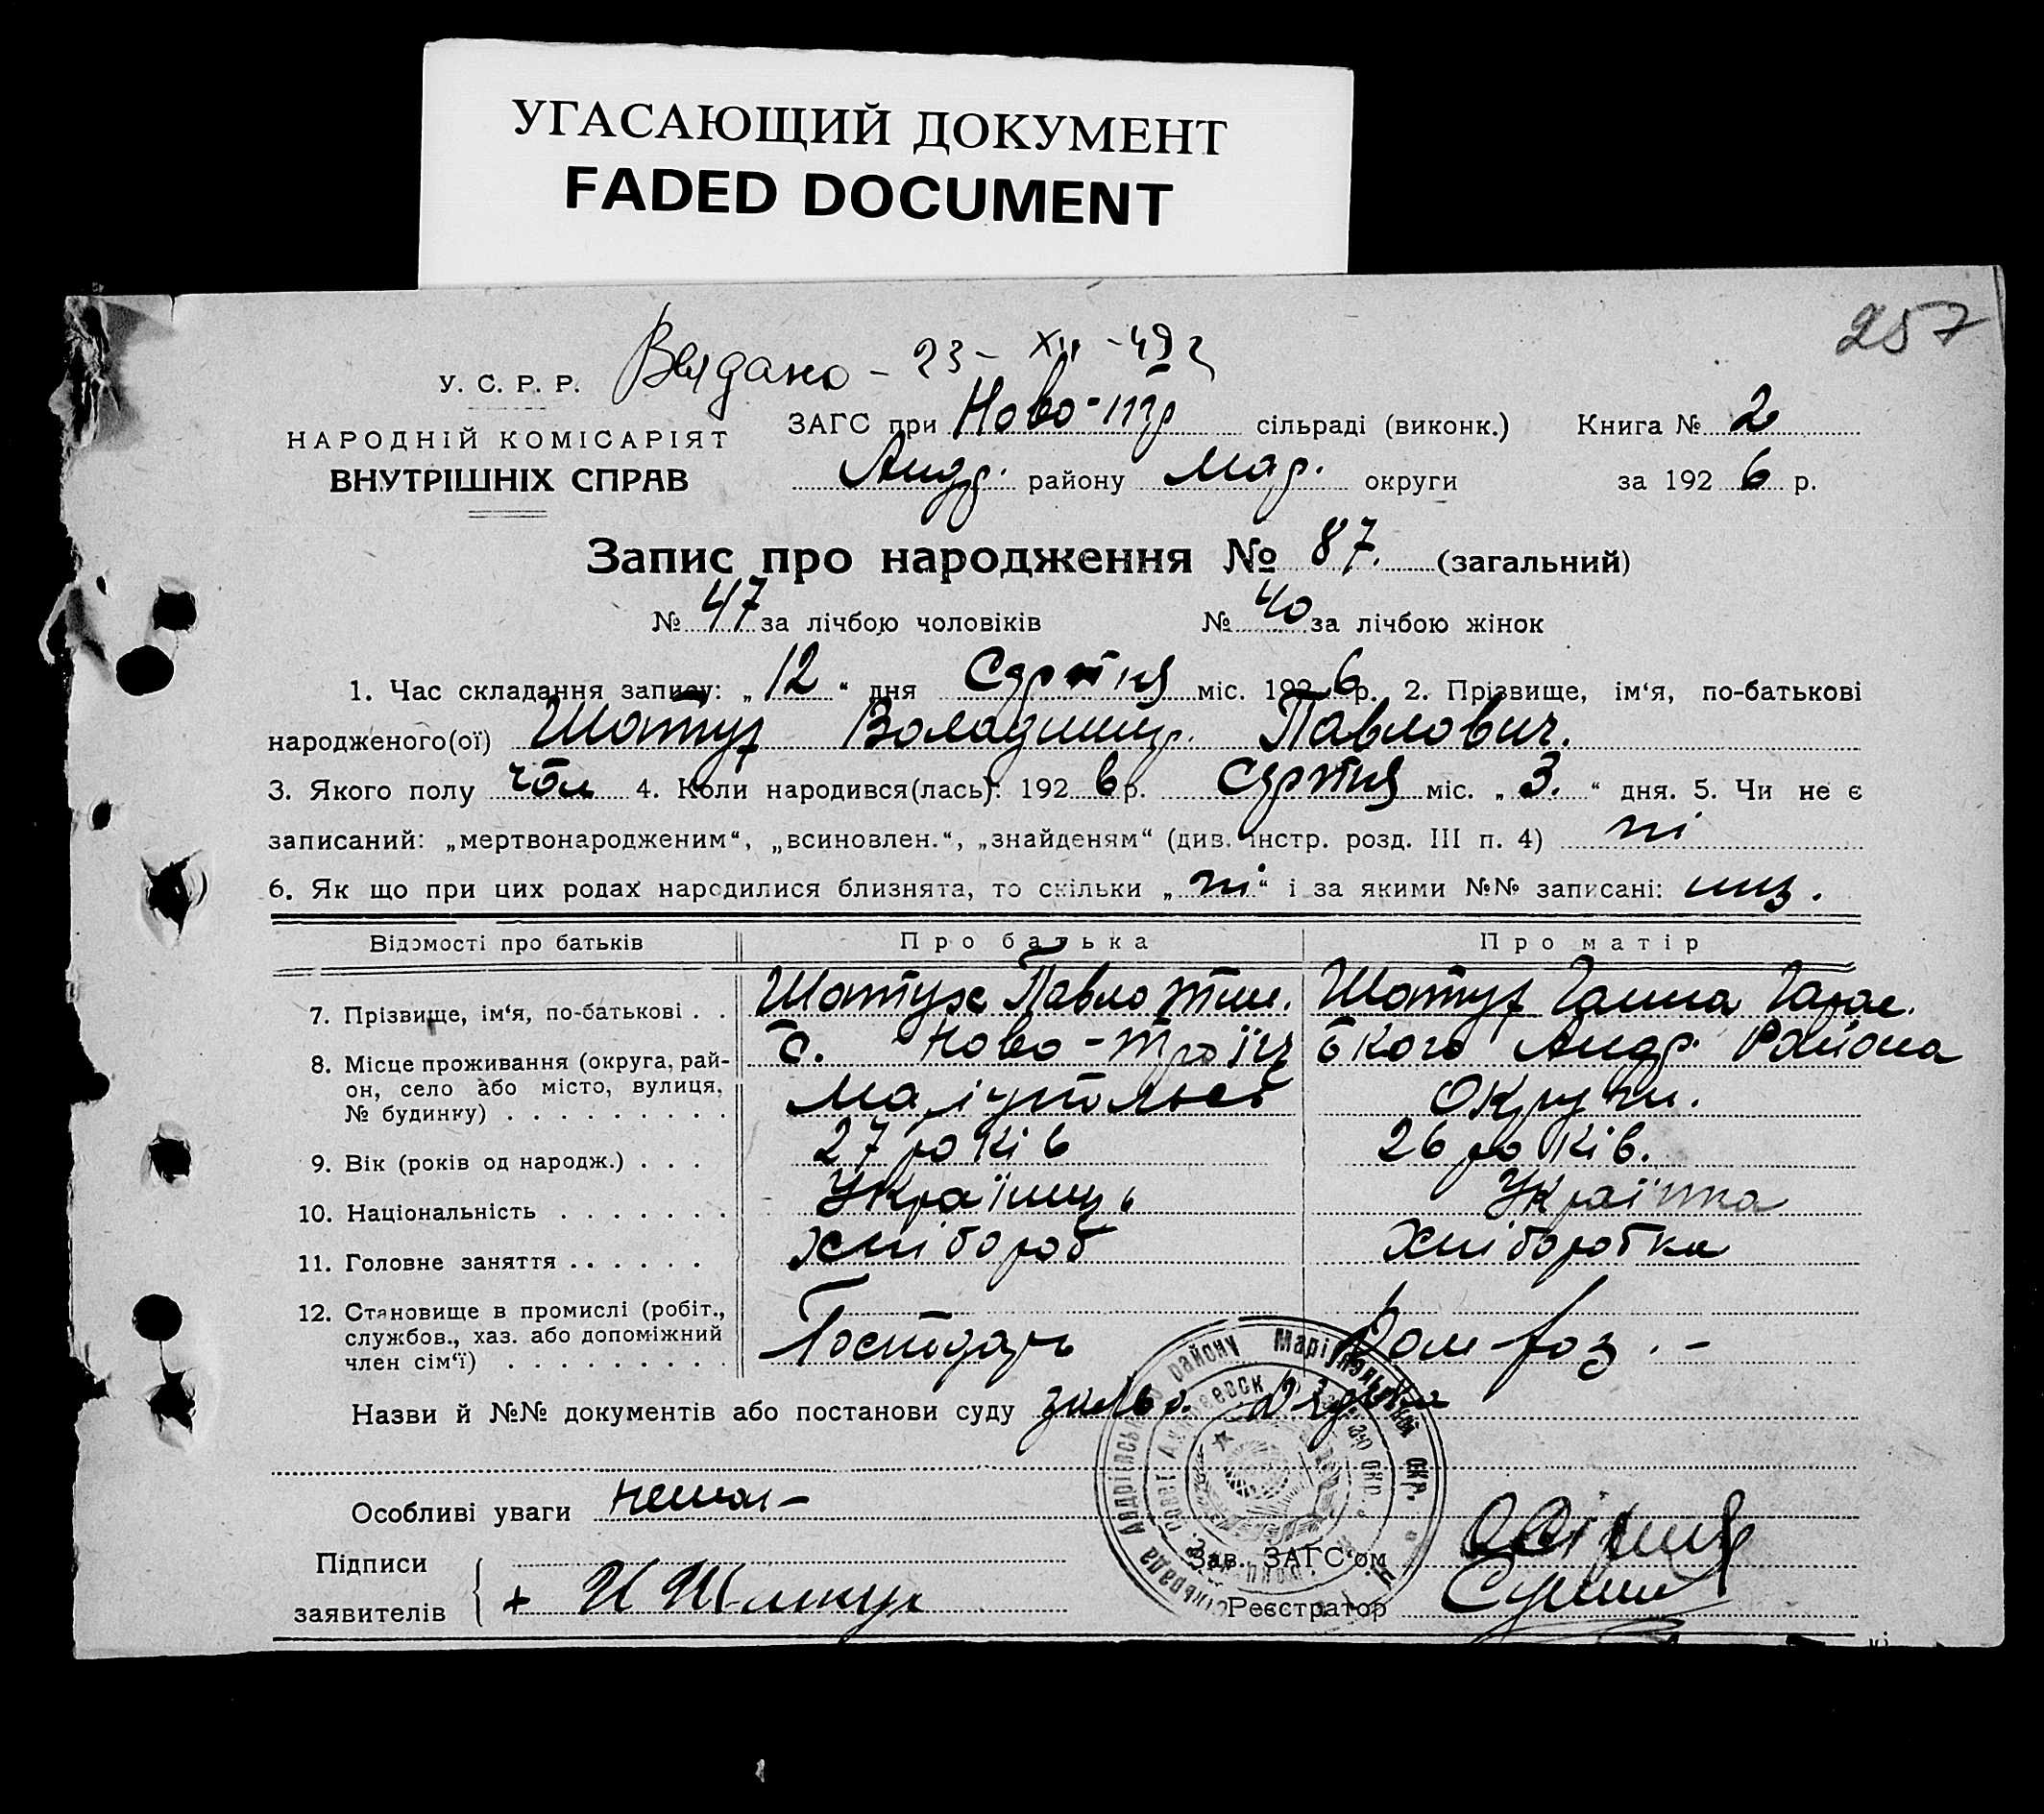 УГАСАЮЩИЙ ДОКУМЕНТ
FADED DOCUMENT
257
Выдано - 23 - XII - 49 г
У. С. Р. Р.
НАРОДНІЙ КОМІСАРІЯТ
ВНУТРІШНІХ СПРАВ
ЗАГС при Ново-тр сільраді (виконк.) Книга № 2
Андр. району Мар. округи за 1926 р.
Запис про народження № 87. (загальний)
№ 47 за лічбою чоловіків № 40 за лічбою жінок
1. Час складання запису: „12“ дня Серпня міс. 1926 р. 2. Прізвище, ім‘я, по-батькові
народженого(ої) Шатух Володимир. Павлович.
3. Якого полу чол 4. Коли народився(лась): 1926 р. Серпня міс. „3.“ дня. 5. Чи не є
записаний: „мертвонародженим“, „всиновлен.“, „знайденям“ (див. інстр. розд. III п. 4) ні
6. Як що при цих родах народилися близнята, то скільки „ні“ і за якими №№ записані:
Відомості про батьків Про батька Про матір
7. Прізвище, ім‘я, по-батькові . . Шатух Павло Тим. Шатух Ганна Гарас.
8. Місце проживання (округа, рай-он, село або місто, вулиця, № будинку) с. Ново-Троїцького Андр. Района
Маріупольсь Округи.
9. Вік (років од народж.) . . . 27 років 26 років.
10. Національність . . . . . . . Українць Українка
11. Головне заняття . . . . . . Хлібороб Хліборобка
12. Становище в промислі (робіт., службов., хаз. або допоміжний член сім‘ї) . . . . . . . . . Господарь Дом-хоз. -
Назви й №№ документів або постанови суду
Особливі уваги немає -
Підписи
заявителів + И Шатух
Зав. ЗАГС‘ом
Реєстратор